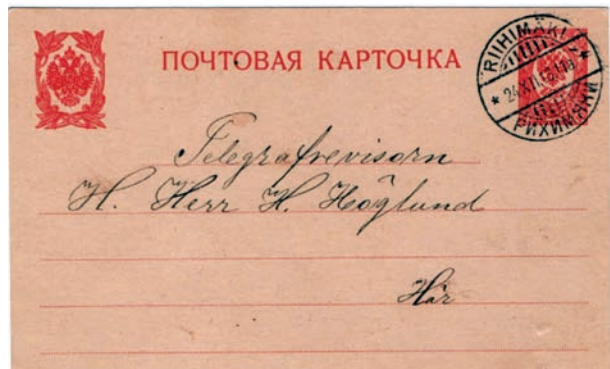 ПОЧТОВАЯ КАРТОЧКА
RIIHIMÄKI
РИХИМЯКИ
Telegrafrevisorn
H. Herr H. Höglund
Här